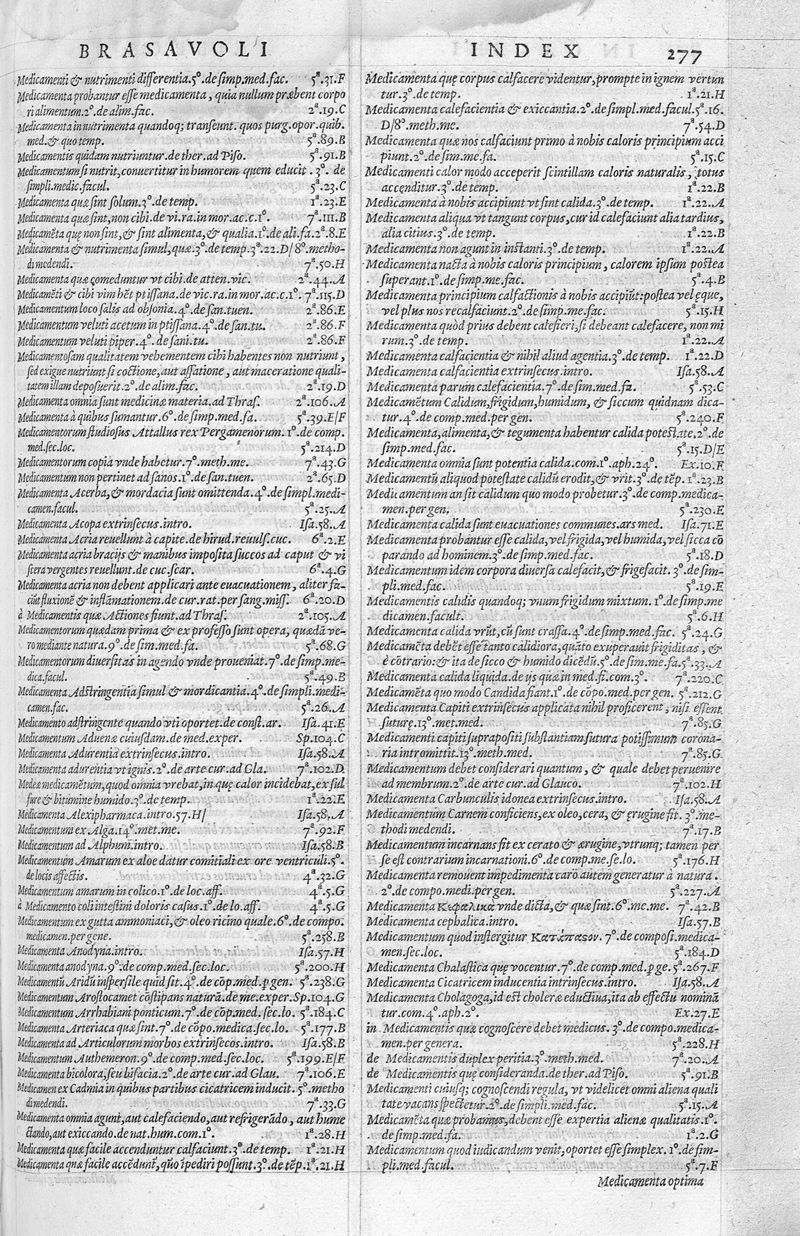 BRASAVOLI INDEX 277
Medicamenti & nutrimenti differentia.5º.de simp.med.fac. 5ª.31.F
Medicamenta probantur esse medicamenta, quia nullum præbent corpo
ri alimentum.2º.de alim.fac. 2ª.19.C
Medicamenta in nutrimenta quandoq; transeunt. quos purg.opor.quib.
med.& quo temp. 5ª.89.B
Medicamentis quidam nutriuntur.de ther.ad Piso. 5ª.91.B
Medicamentum si nutrit, conuertitur in humorem quem educit.3º. de
simpli.medic.facul. 5ª.23.C
Medicamenta quæ sint solum.3º.de temp. 1ª.23.E
Medicamenta quæ sint, non cibi.de vi.ra.in mor.ac.c.1º. 7ª.111.B
Medicamẽta quę non sint, & sint alimenta, & qualia.1º.de ali.fa.2ª.8.E
Medicamenta & nutrimenta simul, quæ.3º.de temp.3ª.22.D/8º.metho-
di medendi. 7ª.50.H
Medicamenta quæ comeduntur vt cibi.de atten.vic. 2ª.44.A
Medicamẽti & cibi vim hẽt ptissana.de vic.ra.in mor.ac.c.1º. 7ª.115.D
Medicamentum loco salis ad obsonia.4º.de san.tuen. 2ª.86.E
Medicamentum veluti acetum in ptissana.4º.de san.tu. 2ª.86.F
Medicamentum veluti piper.4º.de sani.tu. 2ª.86.F
Medicamentosam qualitatem vehementem cibi habentes non nutriunt,
sed exigue nutriunt si coctione, aut assatione, aut maceratione quali-
tatem illam deposuerit.2º.de alim.fac. 2ª.19.D
Medicamenta omnia sunt medicinæ materia, ad Thras. 2ª.106.A
Medicamenta à quibus sumantur.6º.de simp.med.fa. 5ª.39.E/F
Medicamentorum studiosus Attallus rex Pergamenorum.1º.de comp.
med.sec.loc. 5ª.214.D
Medicamentorum copia vnde habetur.7º.meth.me. 7ª.43.G
Medicamentum non pertinet ad sanos.1º.de san.tuen. 2ª.65.D
Medicamenta Acerba, & mordacia sunt omittenda.4º.de simpl.medi-
camen.facul. 5ª.25.A
Medicamenta Acopa extrinsecus.intro. Isa.58.A
Medicamenta Acria reuellunt à capite.de hirud.reuuls.cuc. 6ª.2.E
Medicamenta acria bracijs & manibus imposita succos ad caput & vi
scera vergentes reuellunt.de cuc.scar. 6ª.4.G
Medicamenta acria non debent applicari ante euacuationem, aliter fa-
ciũt fluxionẽ & inflãmationem.de cur.rat.per sang.miss. 6ª.20.D
à Medicamentis quæ Actiones fiunt.ad Thras. 2ª.105.A
Medicamentorum quædam prima & ex professo sunt opera, quædã ve-
ro mediante natura.9º.de sim.med.fa. 5ª.68.G
Medicamentorum diuersitas in agendo vnde proueniat.7º.de simp.me-
dica.facul. 5ª.49.B
Medicamenta Adstringentia simul & mordicantia.4º.de simpli.medi-
camen.fac. 5ª.26.A
Medicamento adstringente quando vti oportet.de const.ar. Isa.41.E
Medicamentum Aduenæ cuiusdam.de med.exper. Sp.104.C
Medicamenta Adurentia extrinsecus.intro. Isa.58.A
Medicamenta adurentia vt ignis.2º.de arte cur.ad Gla. 7ª.102.D
Medeæ medicamẽtum, quod omnia vrebat, in quę calor incidebat, ex sul
fure & bitumine humido.3º.de temp. 1ª.22.E
Medicamenta Alexipharmaca.intro.57.H/ Isa.58.A
Medicamentum ex Alga.14º.met.me. 7ª.92.F
Medicamentum ad Alphum.intro. Isa.58.B
Medicamentum Amarum ex aloe datur comitiali ex ore ventriculi.5º.
de locis affectis. 4ª.32.G
Medicamentum amarum in colico.1º.de loc.aff. 4ª.5.G
à Medicamento coli intestini doloris casus.1º.de lo.aff. 4ª.5.G
Medicamentum ex gutta ammoniaci, & oleo ricino quale.6º.de compo.
medicamen.pergene. 5ª.258.B
Medicamenta Anodyna.intro. Isa.57.H
Medicamenta anodyna.9º.de comp.med.sec.loc. 5ª.200.H
Medicamentũ Aridũ inspersile quid sit.4º.de cõp.med.p gen. 5ª.238.G
Medicamentum Aroflocamet cõstipans naturã.de me.exper. Sp.104.G
Medicamentum Arrhabiani ponticum.7º.de cõp.med.sec.lo. 5ª.184.C
Medicamenta Arteriaca quæ sint.7º.de cõpo.medica.sec.lo. 5ª.177.B
Medicamenta ad Articulorum morbos extrinsecus.intro. Isa.58.B
Medicamentum Authemeron.9º.de comp.med.sec.loc. 5ª.199.E/F
Medicamenta bicolora, seu bifacia.2º.de arte cur.ad Glau. 7ª.106.E
Medicamen ex Cadmia in quibus partibus cicatricem inducit.5º.metho
di medendi. 7ª.33.G
Medicamenta omnia agunt, aut calefaciendo, aut refrigerãdo, aut hume
ctando, aut exiccando.de nat.hum.com.1º. 1ª.28.H
Medicamenta quæ facile accenduntur calfaciunt.3º.de temp. 1ª.21.H
Medicamenta quæ facile accẽdunt, quõ ĩpediri possunt.3º.de tẽp.1ª.21.H
Medicamenta quę corpus calfacere videntur, prompte in ignem vertun
tur.3º.de temp. 1ª.21.H
Medicamenta calefacientia & exiccantia.2º.de simpl.med.facul.5ª.16.
D/8º.meth.me. 7ª.54.D
Medicamenta quæ nos calfaciunt primo à nobis caloris principium acci
piunt.2º.de sim.me.fa. 5ª.15.C
Medicamenti calor modo acceperit scintillam caloris naturalis, totus
accenditur.3º.de temp. 1ª.22.B
Medicamenta à nobis accipiunt vt sint calida.3º.de temp. 1ª.22.A
Medicamenta aliqua vt tangunt corpus, cur id calefaciunt alia tardius,
alia citius.3º.de temp. 1ª.22.B
Medicamenta non agunt in instanti.3º.de temp. 1ª.22.A
Medicamenta nacta à nobis caloris principium, calorem ipsum postea
superant.1º.de simp.me.fac. 5ª.4.B
Medicamenta principium calfactionis à nobis accipiũt: postea vel ęque,
vel plus nos recalfaciunt.2º.de simp.me.fac. 5ª.15.H
Medicamenta quòd prius debent calefieri, si debeant calefacere, non mi
rum.3º.de temp. 1ª.22.A
Medicamenta calfacientia & nihil aliud agentia.3º.de temp. 1ª.22.D
Medicamenta calfacientia extrinsecus.intro. Isa.58.A
Medicamenta parum calefacientia.7º.de sim.med.fa. 5ª.53.C
Medicamẽtum Calidum, frigidum, humidum, & siccum quidnam dica-
tur.4º.de comp.med.per gen. 5ª.240.F
Medicamenta, alimenta, & tegumenta habentur calida potestate.2º.de
simp.med.fac. 5ª.15.D/E
Medicamenta omnia sunt potentia calida.com.1º.aph.24º. Ex.10.F
Medicamentũ aliquod potestate calidũ erodit, & vrit.3º.de tẽp. 1ª.23.B
Medicamentum an sit calidum quo modo probetur.3º.de comp.medica-
men.per gen. 5ª.230.E
Medicamenta calida sunt euacuationes communes.ars med. Isa.71.E
Medicamenta probantur esse calida, vel frigida, vel humida, vel sicca cõ
parando ad hominem.3º.de simp.med.fac. 5ª.18.D
Medicamentum idem corpora diuersa calefacit, & frigefacit.3º.de sim-
pli.med.fac. 5ª.19.E
Medicamentis calidis quandoq; vnum frigidum mixtum.1º.de simp.me
dicamen.facult. 5ª.6.H
Medicamenta calida vrũt, cũ sunt crassa.4º.de simp.med.fac. 5ª.24.G
Medicamẽta debẽt esse tanto calidiora, quãto exuperauit frigiditas, &
è cõtrario: & ita de sicco & humido dicẽdũ.5º.de sim.me.fa.5ª.33.A
Medicamenta calida liquida.de ijs quæ in med.fi.com.3º. 7ª.220.C
Medicamẽta quo modo Candida fiant.1º.de cõpo.med.per gen. 5ª.212.G
Medicamenta Capiti extrinsecus applicata nihil proficerent, nisi essent
suturę.13º.met.med. 7ª.85.G
Medicamenti capiti suprapositi substantiam sutura potissimum corona-
ria intromittit.13º.meth.med. 7ª.85.G
Medicamentum debet considerari quantum, & quale debet peruenire
ad membrum.2º.de arte cur.ad Glauco. 7ª.102.H
Medicamenta Carbunculis idonea extrinsecus.intro. Isa.58.A
Medicamentum Carnem conficiens, ex oleo, cera, & erugine fit.3º.me-
thodi medendi. 7ª.17.B
Medicamentum incarnans fit ex cerato & ærugine, vtrunq; tamen per
se est contrarium incarnationi.6º.de comp.me.se.lo. 5ª.176.H
Medicamenta remouent impedimenta caro autem generatur à natura.
2º.de compo.medi.per gen. 5ª.227.A
Medicamenta Κεφαλικα vnde dicta, & quæ sint.6º.me.me. 7ª.42.B
Medicamenta cephalica.intro. Isa.57.B
Medicamentum quod instergitur Κατάπασον.7º.de composi.medica-
men.sec.loc. 5ª.184.D
Medicamenta Chalastica quę vocentur.7º.de comp.med.p ge. 5ª.267.F
Medicamenta Cicatricem inducentia intrinsecus.intro. Isa.58.A
Medicamenta Cholagoga, id est choleræ eductiua, ita ab effectu nominã
tur.com.4º.aph.2º. Ex.27.E
in Medicamentis quæ cognoscere debet medicus.3º.de compo.medica-
men.per genera. 5ª.228.H
de Medicamentis duplex peritia.3º.meth.med. 7ª.20.A
de Medicamentis quę consideranda.de ther.ad Piso. 5ª.91.B
Medicamenti cuiusq; cognoscendi regula, vt videlicet omni aliena quali
tate vacans spectetur.2º.de simpli.med.fac. 5ª.15.A
Medicamẽta quæ probamus, debent esse expertia alienæ qualitatis.1º.
de simp.med.fa. 1ª.2.G
Medicamentum quod iudicandum venit, oportet esse simplex.1º.de sim-
pli.med.facul. 5ª.7.F
Medicamenta optima